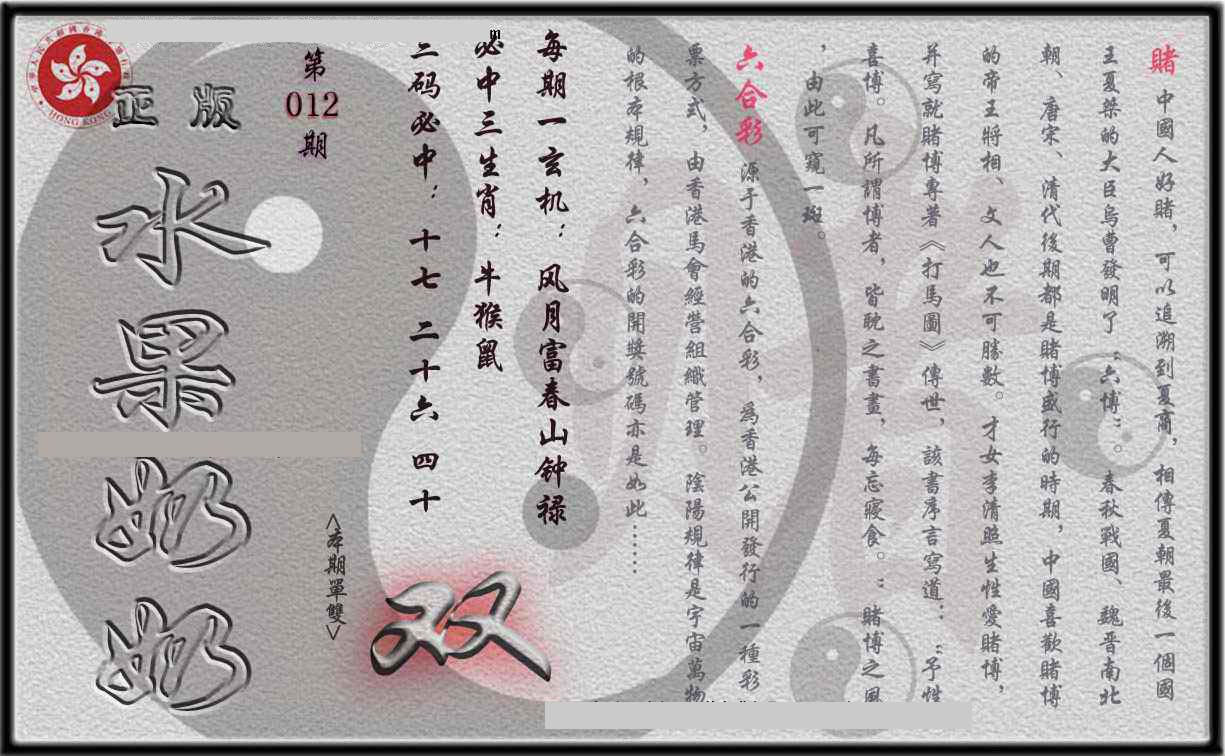 賭 中國人好賭，可以追溯到夏商，相傳夏朝最後一個國
王夏桀的大臣烏曹發明了“六博”。春秋戰國、魏晋南北
朝、唐宋、清代後期都是賭博盛行的時期，中國喜歡賭博
的帝王將相、文人也不可勝數。才女李清照生性愛賭博，
并寫就賭博專著《打馬圖》傳世，該書序言寫道：“予性
喜博。凡所謂博者，皆耽之書畫，每忘寢食。”賭博之風
，由此可窺一斑。
六合彩 源于香港的六合彩，為香港公開發行的一種彩
票方式，由香港馬會經營組織管理。陰陽規律是宇宙萬物
的根本規律，六合彩的開獎號碼亦是如此……
每期一玄机：风月富春山钟禄
必中三生肖：牛猴鼠
二码必中：十七 二十六 四十
第
012
期
正版
水果奶奶
<本期單雙>
双
HONG KONG